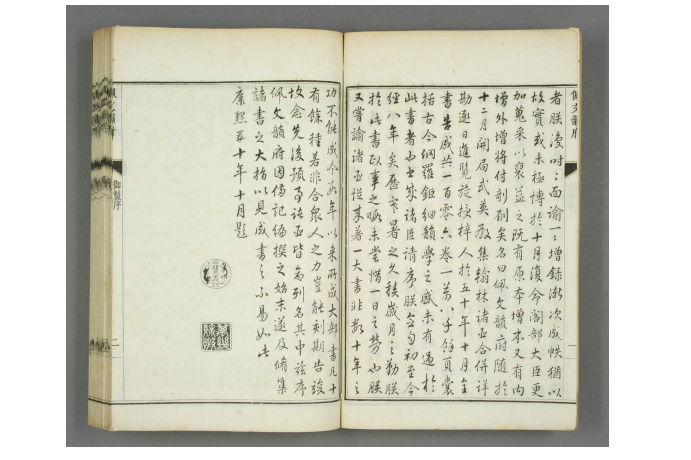 佩文韻府
者朕復時時面諭一一增錄漸次成帙猶以
故實或未極博於十月復命閣部大臣更
加蒐采以裒益之既有原本增本又有內
增外增將付剞劂矣名曰佩文韻府隨於
十二月開局武英殿集翰林諸臣合併詳
勘逐日進覽旋授梓人於五十年十月全
書告成共一百零六卷一萬八千餘頁囊
括古今網羅鉅細韻學之盛未有過於
此書者也
經八年矣歷寒暑之久積歲月之勤朕
於此書政事之暇未嘗惜一日之勞也朕
又嘗諭諸臣從來著一大書非數十年之
功不能成今數年以來所成大部書凡十
有餘種若非合眾人之力豈能刻期告竣
故念先後預事諸臣皆命列名其中茲序
佩文韻府因備記編撰之始末遂及脩集
諸書之大指以見成書之不易如此
康熙五十年十月題
御製序
二